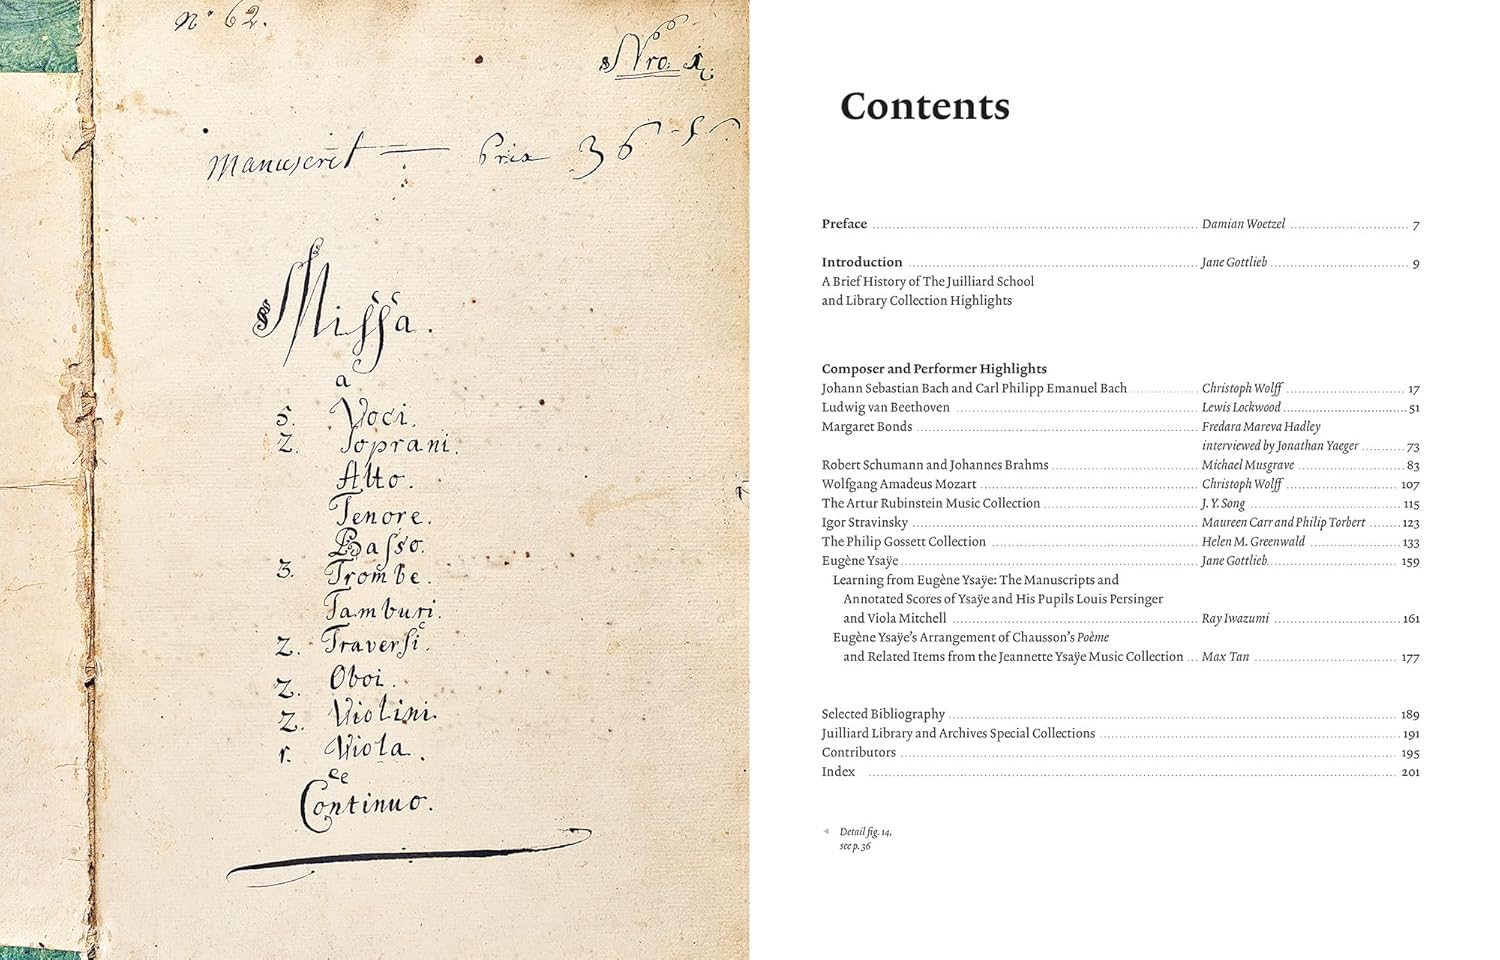 n° 62.
Nro. 1.
Manuscrit = Prix 36
Missa.
a
5. Voci.
2. Soprani.
Alto.
Tenore.
Basso.
3. Trombe.
Tamburi.
2. Traversi.
2. Oboi.
2. Violini.
1. Viola.
e
Continuo.
Contents
Preface Damian Woetzel 7
Introduction Jane Gottlieb 9
A Brief History of The Juilliard School
and Library Collection Highlights
Composer and Performer Highlights
Johann Sebastian Bach and Carl Philipp Emanuel Bach Christoph Wolff 17
Ludwig van Beethoven Lewis Lockwood 51
Margaret Bonds Fredara Mareva Hadley
interviewed by Jonathan Yaeger 73
Robert Schumann and Johannes Brahms Michael Musgrave 83
Wolfgang Amadeus Mozart Christoph Wolff 107
The Artur Rubinstein Music Collection J. Y. Song 115
Igor Stravinsky Maureen Carr and Philip Torbert 123
The Philip Gossett Collection Helen M. Greenwald 133
Eugène Ysaÿe Jane Gottlieb 159
Learning from Eugène Ysaÿe: The Manuscripts and
Annotated Scores of Ysaÿe and His Pupils Louis Persinger
and Viola Mitchell Ray Iwazumi 161
Eugène Ysaÿe's Arrangement of Chausson's Poème
and Related Items from the Jeannette Ysaÿe Music Collection Max Tan 177
Selected Bibliography 189
Juilliard Library and Archives Special Collections 191
Contributors 195
Index 201
Detail fig. 14,
see p. 36